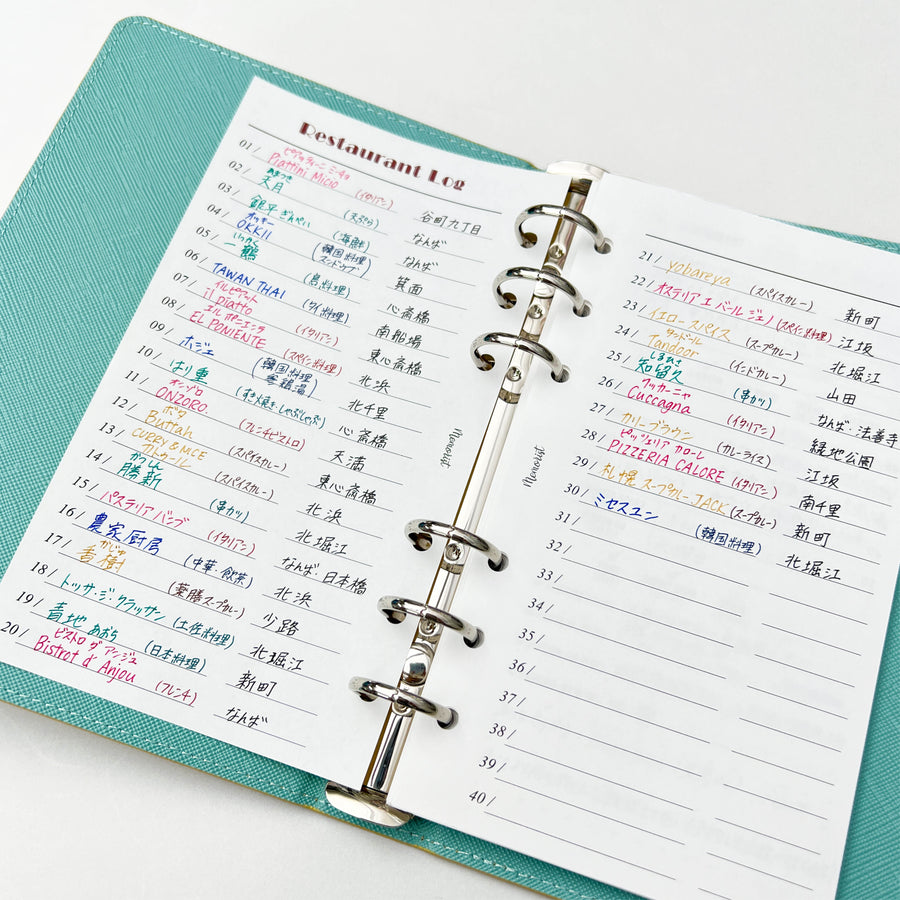 Restaurant Log
01/ ピアッティーニ ミーチョ
Piattini Micio (イタリアン) 谷町九丁目
02/ あまつき
天月 (天ぷら) なんば
03/ 銀平 ぎんぺい (海鮮) なんば
04/ オッキー
OKKII (韓国料理 スンドゥブ) 箕面
05/ いっかく
一鶴 (鳥料理) 心斎橋
06/ TAWAN THAI (タイ料理) 南船場
07/ イルピアット
il piatto (イタリアン) 東心斎橋
08/ エル ポニエンテ
EL PONIENTE (スペイン料理) 北浜
09/ ホジェ (韓国料理 参鶏湯) 北千里
10/ はり重 (すき焼き・しゃぶしゃぶ) 心斎橋
11/ オンゾロ
ONZORO (フレンチビストロ) 天満
12/ ボタ
Buttah (スパイスカレー) 東心斎橋
13/ CURRY & NICE
クトゥール (スパイスカレー) 北浜
14/ かつしん
勝新 (串カツ) 北堀江
15/ パステリア バンブ (イタリアン) なんば・日本橋
16/ 農家厨房 (中華・飲茶) 北浜
17/ かじゅ
香樹 (薬膳スープカレー) 少路
18/ トッサ・ジ・クラッサン (土佐料理) 北堀江
19/ 青地 あおち (日本料理) 新町
20/ ビストロ ダ アンジュ
Bistrot d' Anjou (フレンチ) なんば
Memorist
Memorist
21/ yobareya (スパイスカレー) 新町
22/ オステリア エ バール ジェノ (スペイン料理) 江坂
23/ イエロースパイス (スープカレー) 北堀江
24/ タンドール
Tandoor (インドカレー) 山田
25/ しるひさ
知留久 (串カツ) なんば・法善寺
26/ クッカーニャ
Cuccagna (イタリアン) 緑地公園
27/ カリーブラウン (カレーライス) 江坂
28/ ピッツェリア カローレ
PIZZERIA CALORE (イタリアン) 南千里
29/ 札幌 スープカレー JACK (スープカレー) 新町
30/ ミセスユン (韓国料理) 北堀江
31/
32/
33/
34/
35/
36/
37/
38/
39/
40/